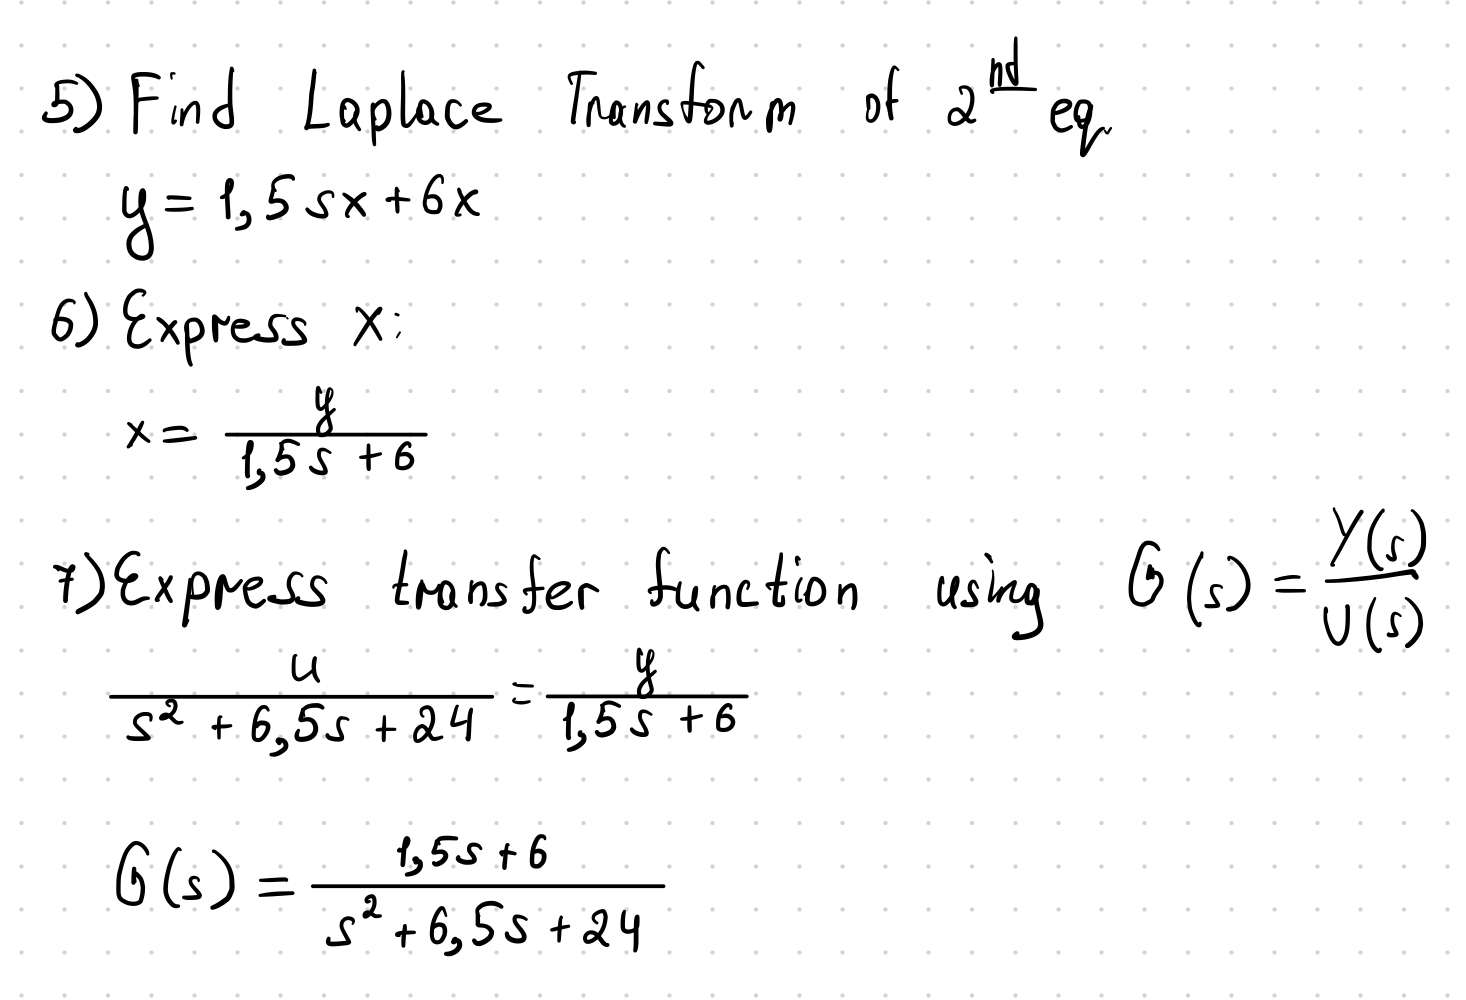 5) Find Laplace Transform of 2nd eq.
y = 1,5 sx + 6x
6) Express x:
x = y / (1,5s + 6)
7) Express transfer function using G(s) = Y(s) / U(s)
u / (s² + 6,5s + 24) = y / (1,5s + 6)
G(s) = (1,5s + 6) / (s² + 6,5s + 24)